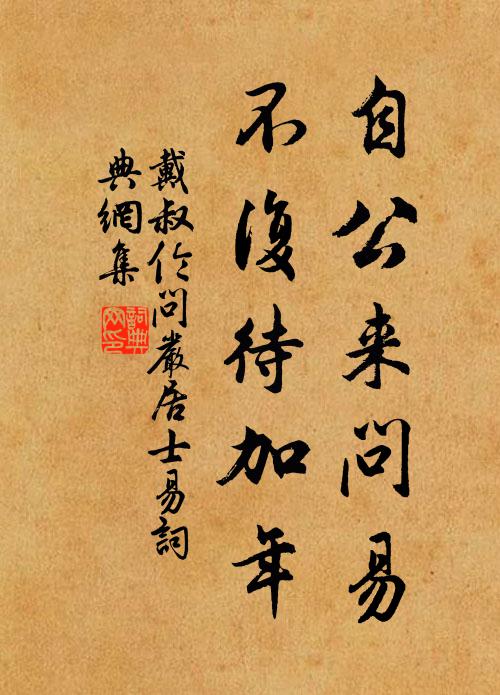 自公来问易
不復待加年
戴叔伦问嚴居士易詞
典網集
詞典
网印